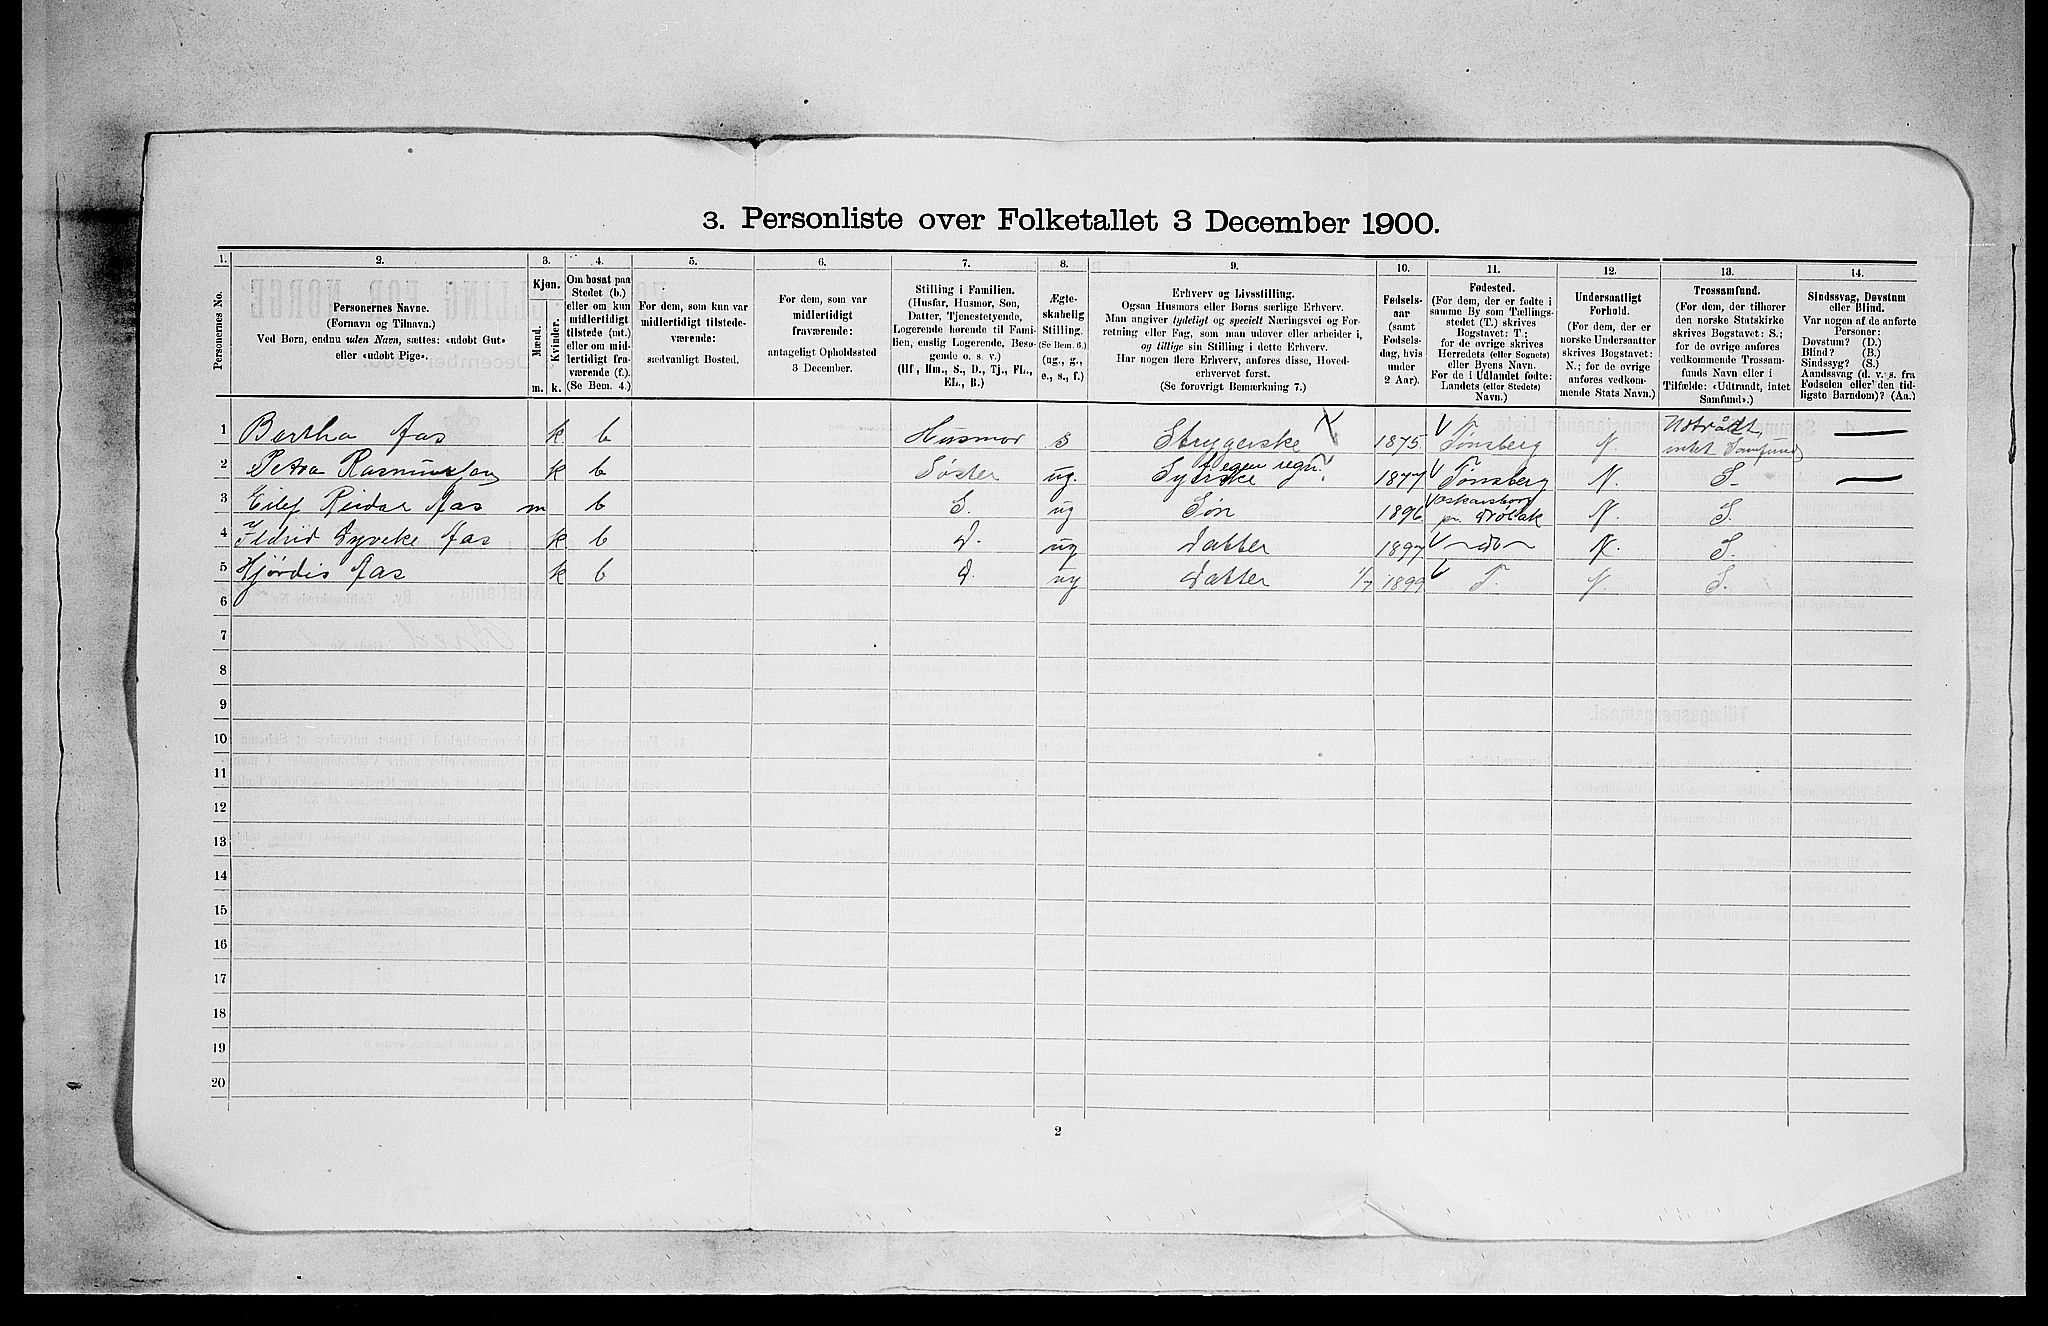 3. Personliste over Folketallet 3 December 1900.
1. 2. 3. 4. 5. 6. 7. 8. 9. 10. 11. 12. 13. 14.
Personernes No.
Personernes Navne.
(Fornavn og Tilnavn.)
Ved Børn, endnu uden Navn, sættes: «udøbt Gut»
eller «udøbt Pige».
Kjøn.
Mænd.
Kvinder.
m. k.
Om bosat paa
Stedet (b.)
eller om kun
midlertidigt
tilstede (mt.)
eller om mid-
lertidigt fra-
værende (f.).
(Se Bem. 4.)
For dem, som kun var
midlertidigt tilstede-
værende:
sædvanligt Bosted.
For dem, som var
midlertidigt
fraværende:
antageligt Opholdssted
3 December.
Stilling i Familien.
(Husfar, Husmor, Søn,
Datter, Tjenestetyende,
Logerende hørende til Fami-
lien, enslig Logerende, Besø-
gende o. s. v.)
(Hf., Hm., S., D., Tj., FL.,
EL., B.)
Ægte-
skabelig
Stilling.
(Se Bem. 6.)
(ug., g.,
e., s., f.)
Erhverv og Livsstilling.
Ogsaa Husmors eller Børns særlige Erhverv.
Man angiver tydeligt og specielt Næringsvei og For-
retning eller Fag, som man udøver eller arbeider i,
og tillige sin Stilling i dette Erhverv.
Har nogen flere Erhverv, anføres disse, Hoved-
erhvervet først.
(Se forøvrigt Bemærkning 7.)
Fødsels-
aar
(samt
Fødsels-
dag, hvis
under
2 Aar).
Fødested.
(For dem, der er fødte i
samme By som Tællings-
stedet (T.) skrives
Bogstavet: T.;
for de øvrige skrives
Herredets (eller Sognets)
eller Byens Navn.
For de i Udlandet fødte:
Landets (eller Stedets)
Navn.)
Undersaatligt
Forhold.
(For dem, der er
norske Undersaatter
skrives Bogstavet:
N.; for de øvrige
anføres vedkom-
mende Stats Navn.)
Trossamfund.
(For dem, der tilhører
den norske Statskirke
skrives Bogstavet: S.;
for de øvrige anføres
vedkommende Trossam-
funds Navn eller i
Tilfælde: «Udtraadt, intet
Samfund».)
Sindssvag, Døvstum
eller Blind.
Var nogen af de anførte
Personer:
Døvstum? (D.)
Blind? (B.)
Sindssyg? (S.)
Aandssvag (d. v. s. fra
Fødselen eller den tid-
ligste Barndom)? (Aa.)
1 Bertha Aas k. b Husmor s Strygerske 1875. Tønsberg N. Udtrådt, intet Samfund
2 Petra Rasmussen k b Søster ug. Syerske f. egen regn. 1877 Tønsberg N. S.
3 Eilef Reidar Aas m b S. ug Søn 1896 Oskarsborg pr. Drøbak N. S.
4 Ildrid Dyveke Aas k. b D. ug Datter 1897 do N. S.
5 Hjørdis Aas k b d. ug Datter 1/7 1899 T. N. S.
6
7
8
9
10
11
12
13
14
15
16
17
18
19
20
2